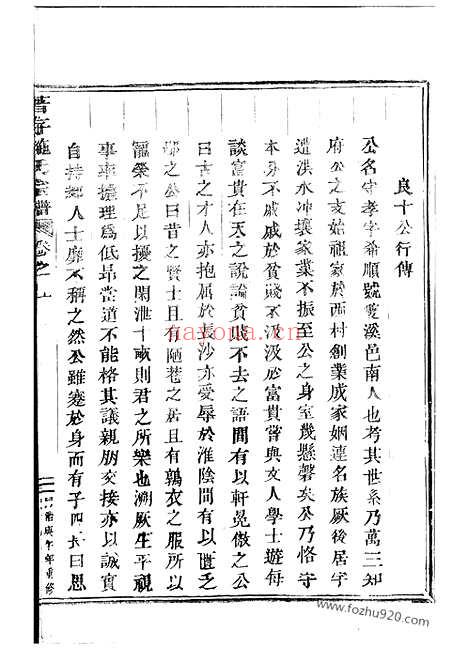 良十公行傳
公名守孝字希順號雙溪邑南人也考其世系乃萬三知
府公之支始祖家於西村創業成家姻連名族厥後居宇
遭洪水沖壞家業不振至公之身室幾懸磬矣公乃恪守
本身不戚戚於貧賤不汲汲於富貴嘗與文人學士遊每
談富貴在天之說論貧賤不去之語間有以軒冕傲之公
曰古之才人亦抱屈於長沙亦受辱於淮陰間有以匱乏
鄙之公曰昔之賢士且有陋巷之居且有鶉衣之服所以
寵榮不足以擾之閑泄十畝則君之所樂也溯厥生平視
事率據理為低昂當道不能格其議親朋交接亦以誠實
自持鄉人士靡不稱之然公雖變於身而有子四長曰思
氏宗譜 卷之一
治庚午年重修
hayona.cn
www.fozhu920.com